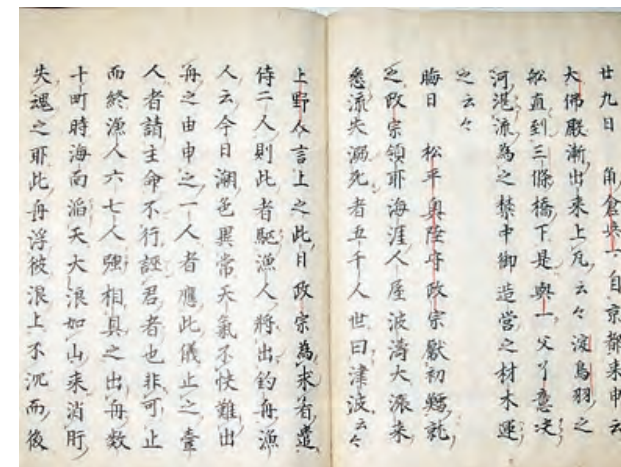 廿九日 角倉與一自京都來申云
大佛殿漸出來上瓦云々淀鳥羽之
舩直到三條橋下是與一父了意决
河堤流為之禁中御造営之材木運
之云々
晦日 松平奥陸守政宗獻初鱈就
之政宗領所海涯人屋波濤大漲来
悉流失溺死者五千人世曰津波云々
上野介言上之此日政宗為求肴遣
侍二人則此者駈漁人将出釣舟漁
人云今日潮色異常天氣不快難出
舟之由申之一人者應此儀止之壹
人者請主命不行誣君者也非可止
而終漁人六七人強相具之出舟数
十町時海南滔天大浪如山来消肝
失魂之耶此舟浮彼浪上不沉而後